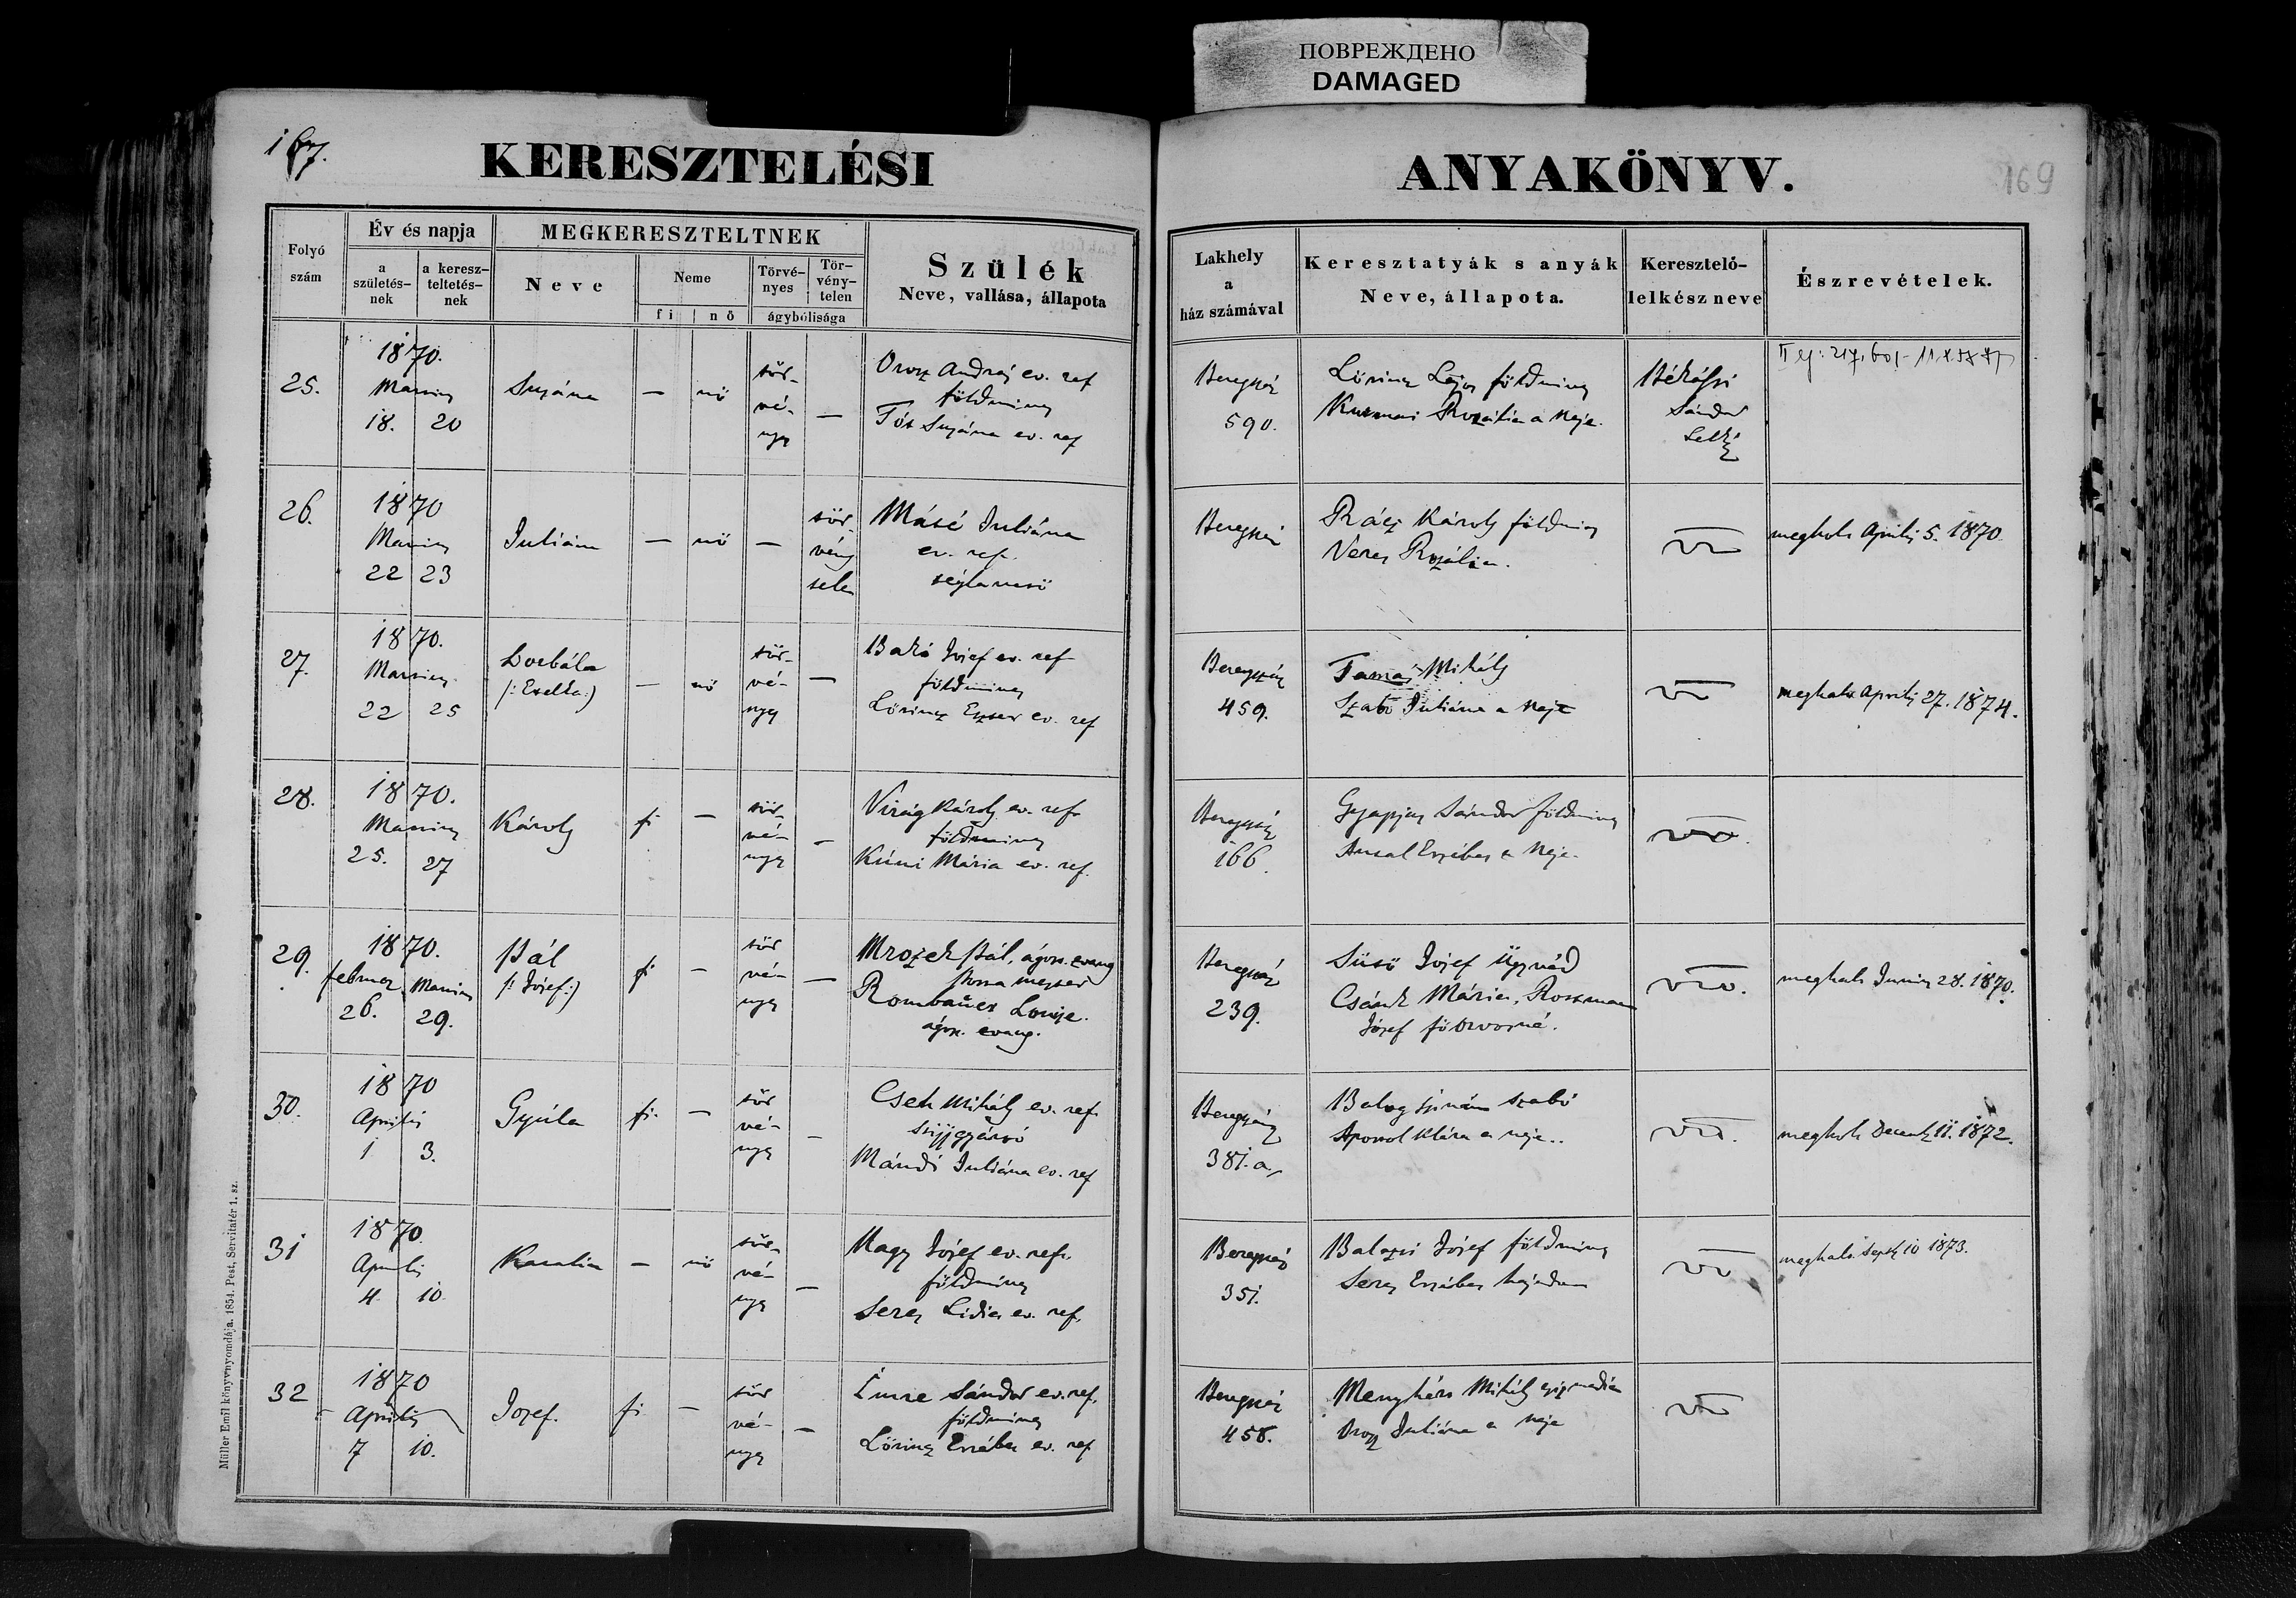 ПОВРЕЖДЕНО
DAMAGED
167.
KERESZTELÉSI
ANYAKÖNYV.
169
Folyó szám
Év és napja
a születés-nek
a keresz-teltetés-nek
MEGKERESZTELTNEK
Neve
Neme
fi
nö
Törvé-nyes
Tör-vény-telen
ágybólisága
Szülék
Neve, vallása, állapota
Lakhely a ház számával
Keresztatyák s anyák
Neve, állapota.
Keresztelő-lelkész neve
Észrevételek.
25.
1870.
Martius
18. 20
nö
tör-
vé-
nyes
Orosz András ev. ref
földmives
Tót ev. ref
Beregszáz
590.
Lörincz Lajos földmives
Rozália a neje.
Sándor
Lelkész
26.
1870
Martius
22 23
Juliána
— nö —
tör
vény
telen
Máté Juliána
ev. ref.
téglavető
Beregszáz
Rácz Károly földmives
Veres Rozália.
meghalt Aprilis 5. 1870.
27.
1870.
Martius
22 25
Borbála
— nö
tör-
vé-
nyes
—
Bakó Josef ev. ref
földmives
Lörincz Eszter ev. ref
Beregszáz
459.
Tamás Mihály
Szabó Juliána a neje
meghalt Aprilis 27. 1874.
28.
1870.
Martius
25. 27
Károly
fi —
tör-
vé-
nyes
—
Virág Károly ev. ref.
földmives
Kúni Mária ev. ref.
Beregszáz
166.
Sándor földmives
Antal Erzsébet a neje.
29.
1870.
februar Martius
26. 29.
Pál
(: Josef:)
fi —
tör
vé-
nyes
—
Mrozek Pál, ágost. evang
posta mester
Rombauer Louise.
ágost. evang.
Beregszáz
239.
Sütö Josef Ügyvéd
Csánk Mária, Rossman
József föorvosné.
meghalt Junius 28. 1870.
30.
1870
Aprilis
1 3.
Gyúla
fi. —
tör
vé-
nyes
—
Cseh Mihály ev. ref.
szijjgyártó
Mándi Juliána ev. ref
Beregszáz
381. a
Balog szabó
Apostol Klára a neje..
meghalt Decemb. 11. 1872.
31
1870.
Aprilis
4 10
— nö
tör-
vé-
nyes
—
Nagy Josef ev. ref.
földmives
Seres Lidia ev. ref.
Beregszáz
351.
Josef földmives
Seres Erzsébet hajadon
meghalt Sept. 10 1873.
32
1870
Aprilis
7 10.
Jozef.
fi —
tör
vé-
nyes
—
Imre Sándor ev. ref.
földmives
Lörincz Erzsébet ev. ref
Beregszáz
458.
Menyhért Mihály
Orosz Juliána a neje
Müller Emil könyvnyomdája. 1854. Pest, Servitatér 1. sz.